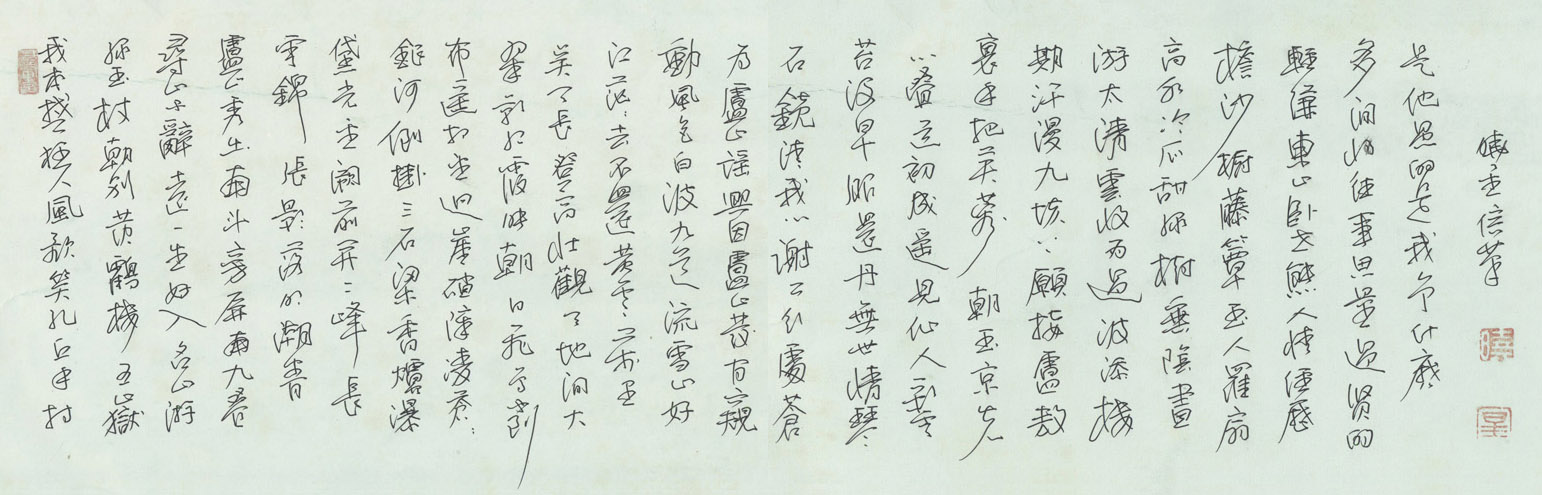 我本楚狂人風歌笑孔丘手持
綠玉杖朝別黃鶴樓五嶽
尋山不辭遠一生好入名山游
廬山秀出南斗旁屏風九疊
雲錦張影落明湖青
黛光金闕前開二峰長
銀河倒掛三石梁香爐瀑
布遙相望迴崖沓嶂凌蒼〻
翠影紅霞映朝日鳥飛不到
吳天長登高壯觀天地間大
江茫〻去不還黃雲萬里
動風色白波九道流雪山好
為廬山謠興因廬山發閑窺
石鏡清我心謝公行處蒼
苔沒早服還丹無世情琴
心疊道初成遙見仙人彩雲
裏手把芙蓉朝玉京先
期汗漫九垓上願接盧敖
游太清雲收雨過波添樓
高水冷瓜甜綠樹垂陰畫
檐紗櫥藤簟玉人羅扇
輕縑東山臥世態人情經歷
多閒將往事思量過賢的
是他愚的是我爭什麼
曉堂信筆